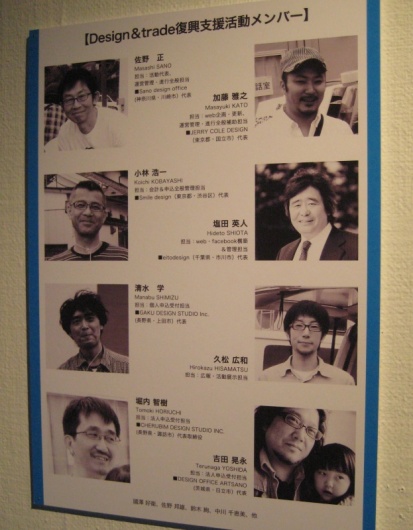 【Design＆trade復興支援活動メンバー】
佐野　正
Masashi SANO
担当：活動代表、
運営管理・進行全般担当
■Sano design office
(神奈川県・川崎市) 代表
加藤 雅之
Masayuki KATO
担当：web企画・更新、
運営管理・進行全般補助担当
■JERRY COLE DESIGN
(東京都・国立市) 代表
小林 浩一
Koichi KOBAYASHI
担当：会計各申込全般管理担当
■Smile design (東京都・渋谷区) 代表
塩田 英人
Hideto SHIOTA
担当：web・facebook構築
&管理担当
(千葉県・市川市) 代表
清水　学
Manabu SHIMIZU
担当：個人申込受付担当
■GAKU DESIGN STUDIO Inc.
(長野県・上田市) 代表
久松 広和
Hirokazu HISAMATSU
担当：広報・活動展示担当
堀内 智樹
Tomoki HORIUCHI
担当：法人申込受付担当
■CHERUBIM DESIGN STUDIO INC.
(長野県・諏訪市) 代表取締役
吉田 晃永
Terunaga YOSHIDA
担当：法人申込受付担当
■DESIGN OFFICE ARTSANO
(茨城県・日立市) 代表